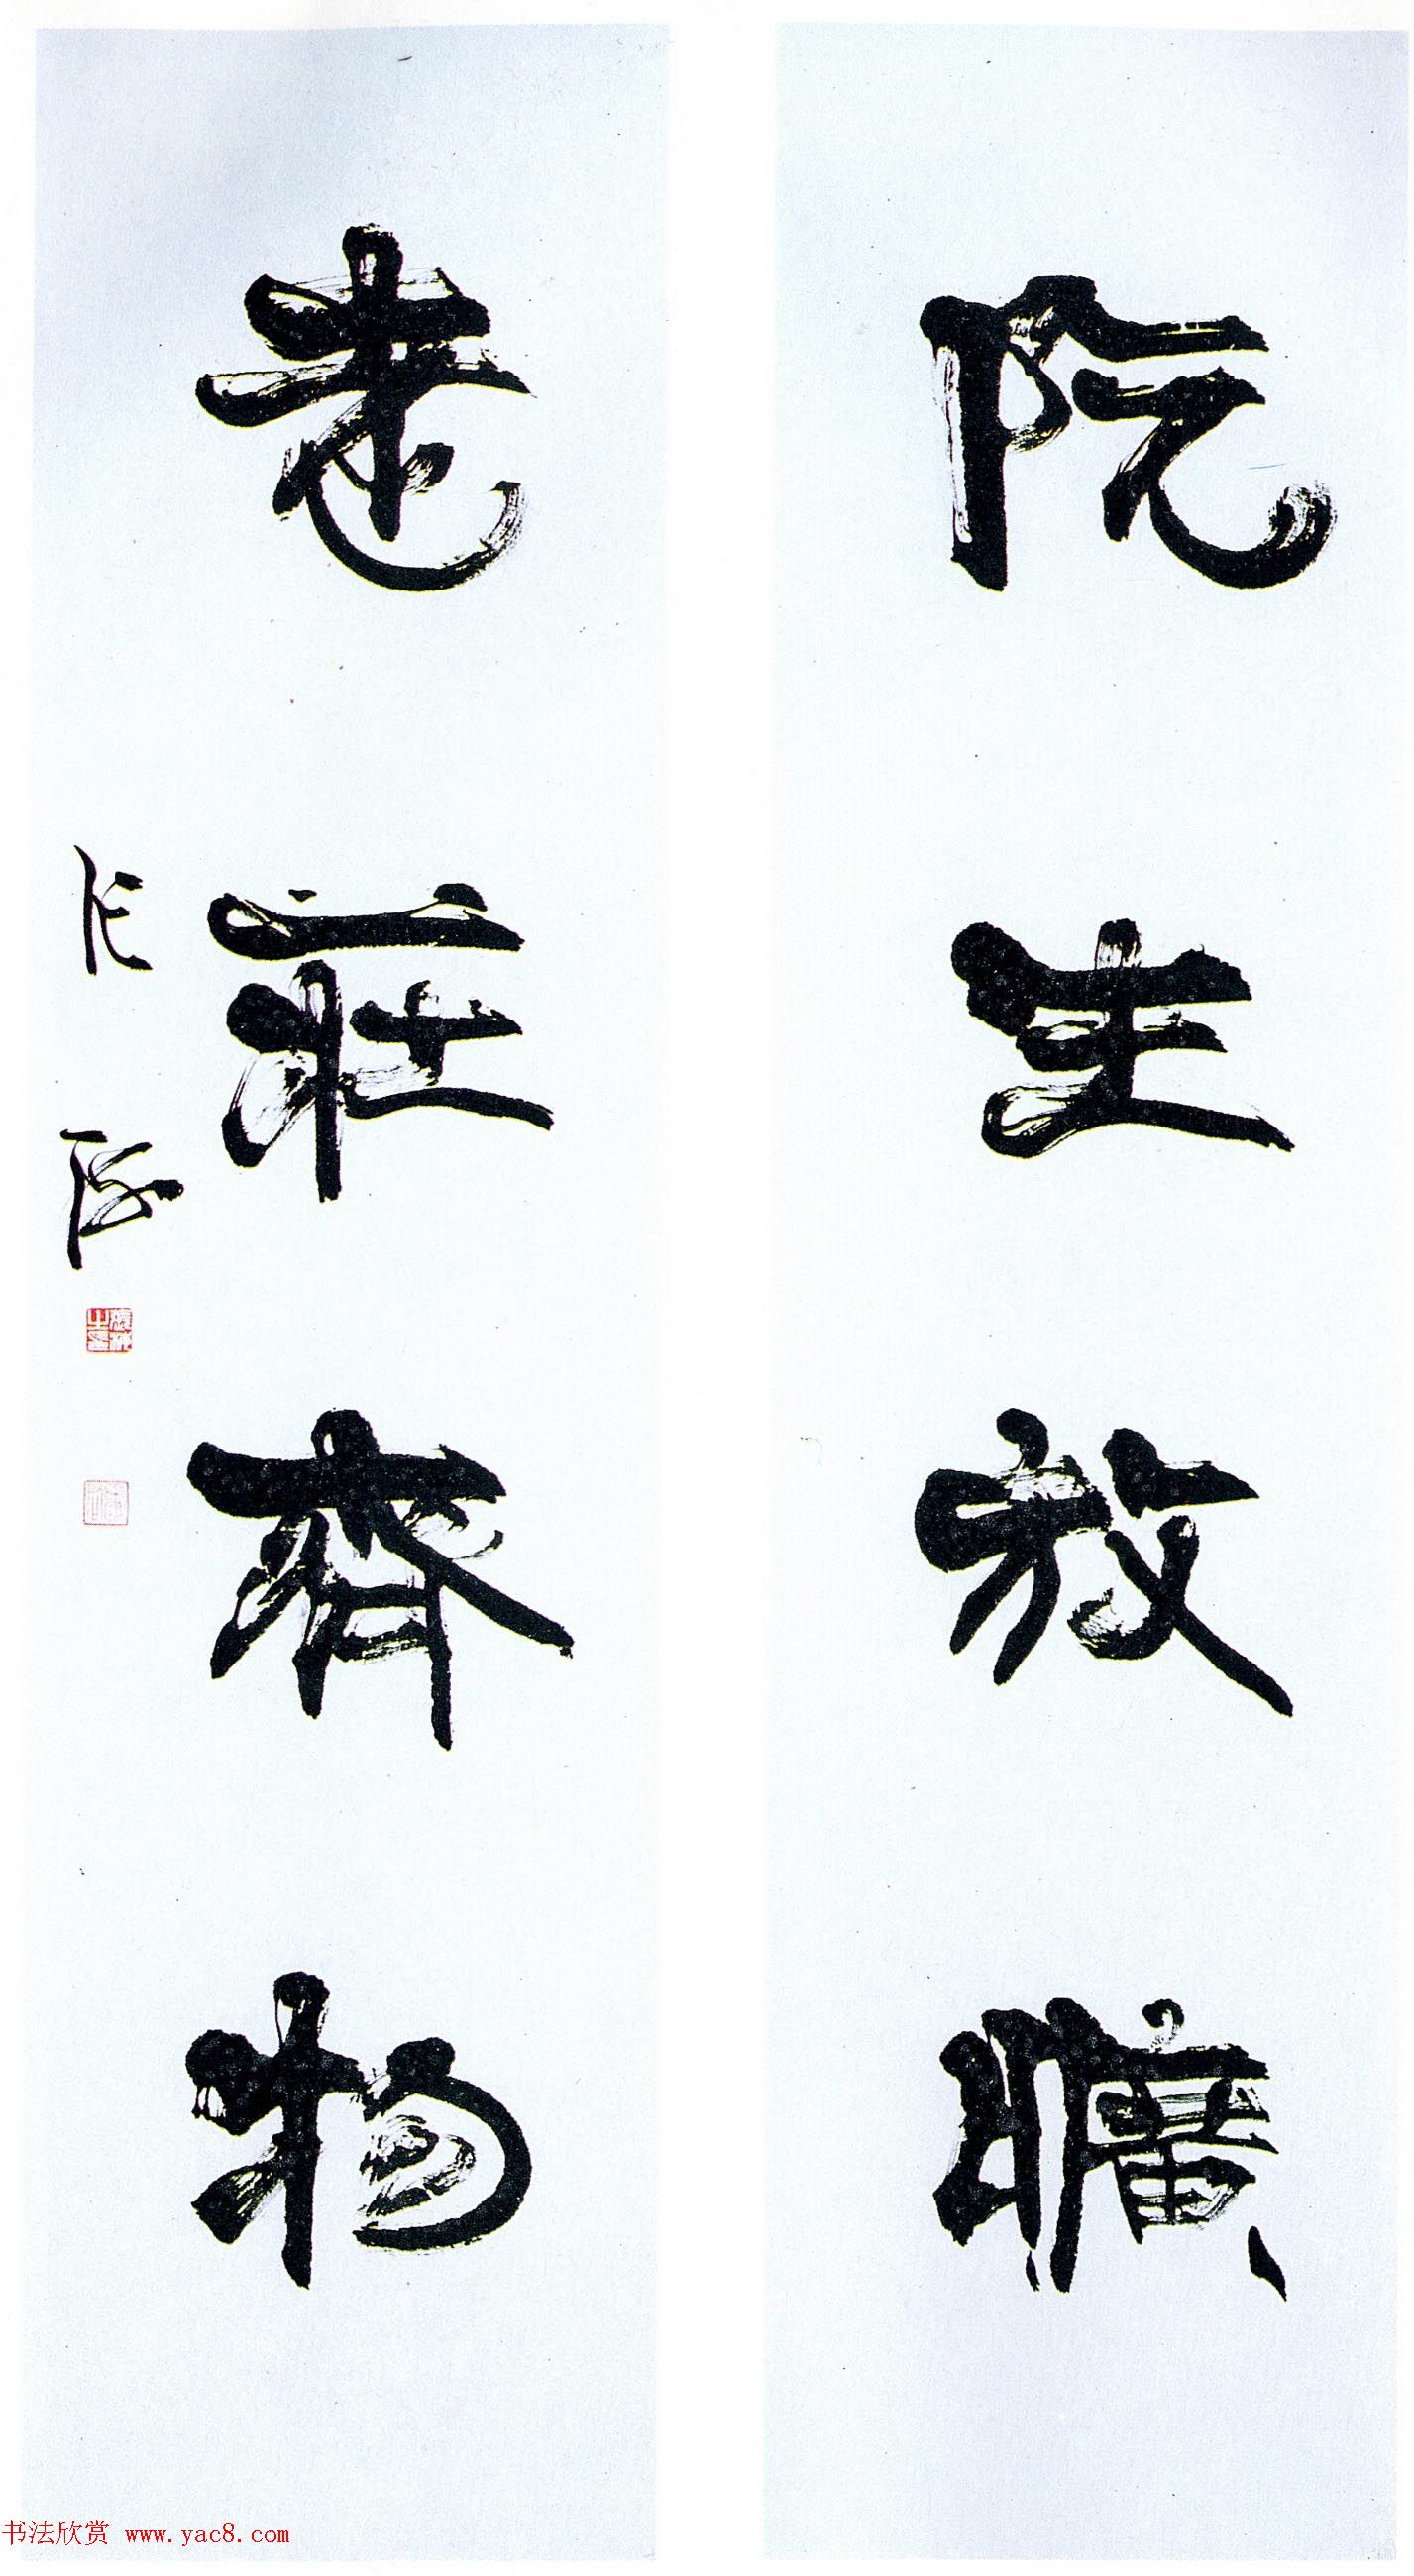 阮生放曠
老莊齊物
书法欣赏 www.yac8.com